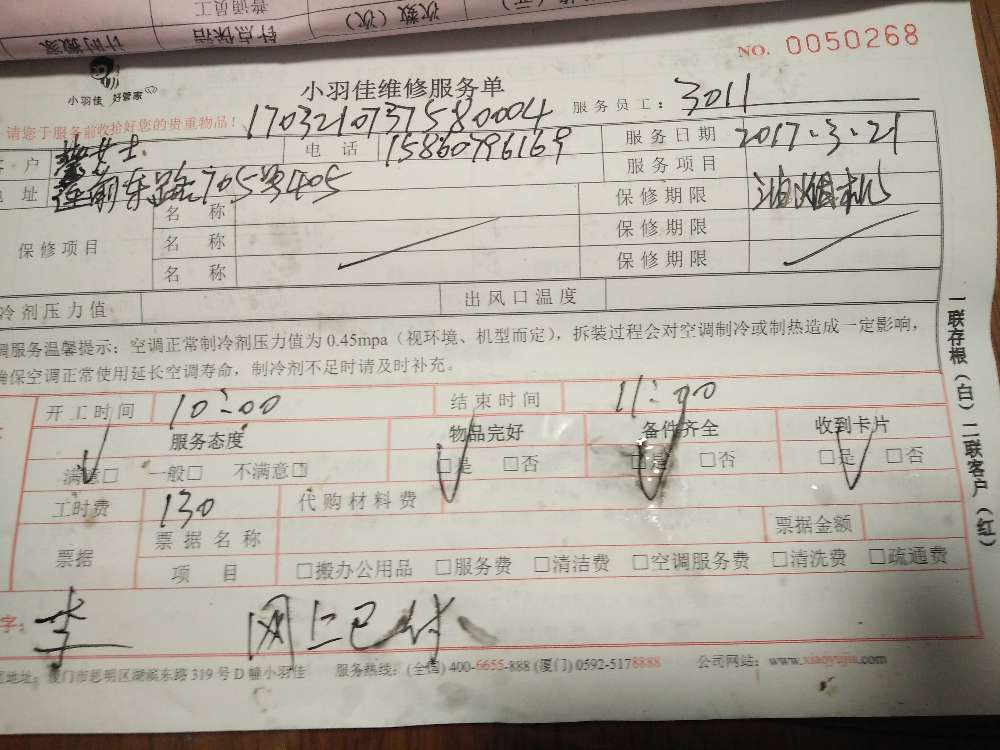 计时搬家 钟点保洁 次数（次）
普通员工
NO. 0050268
小羽佳 好管家
小羽佳维修服务单
服务员工：3011
请您于服务前收拾好您的贵重物品！
1703210737580004
户 女士 电话 15860796169 服务日期 2017.3.21
址 莲前东路705号405 服务项目
保修项目 名称 保修期限 油烟机
名称 保修期限
名称 保修期限
冷剂压力值 出风口温度
调服务温馨提示：空调正常制冷剂压力值为 0.45mpa（视环境、机型而定），拆装过程会对空调制冷或制热造成一定影响，
确保空调正常使用延长空调寿命，制冷剂不足时请及时补充。
开工时间 10:00 结束时间 11:00
服务态度 物品完好 备件齐全 收到卡片
满意□ 一般□ 不满意□ □是 □否 □是 □否 □是 □否
工时费 130 代购材料费
票据 票据名称 票据金额
项目 □搬办公用品 □服务费 □清洁费 □空调服务费 □清洗费 □疏通费
字：李 网上已付
地址：厦门市思明区湖滨东路 319 号 D 幢小羽佳 服务热线：(全国) 400-6655-888 (厦门) 0592-5178888 公司网站：www.xiaoyujia.com
一联存根（白）二联客户（红）